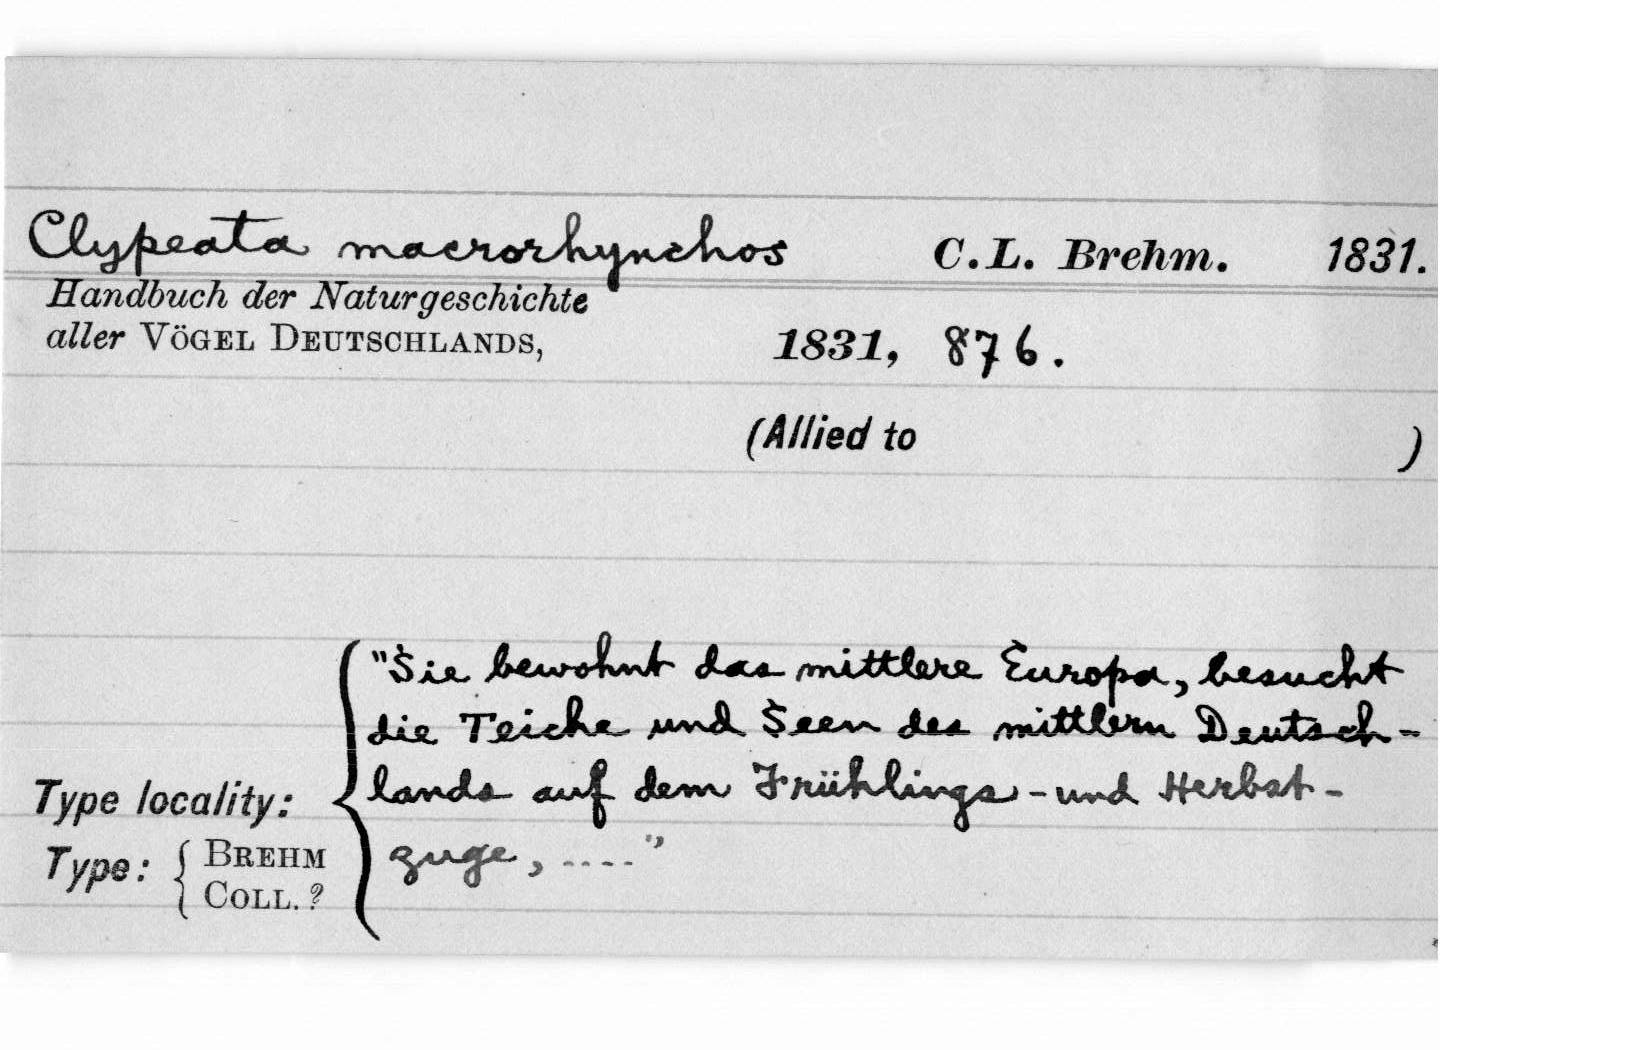 Clypeata macrorhynchos C.L. Brehm. 1831.
Handbuch der Naturgeschichte
aller VÖGEL DEUTSCHLANDS, 1831, 876.
(Allied to )
"Sie bewohnt das mittlere Europa, besucht
die Teiche und Seen des mittlern Deutsch-
lands auf dem Frühlings-und Herbst-
zuge, ...."
Type locality:
Type: { BREHM
COLL. ?